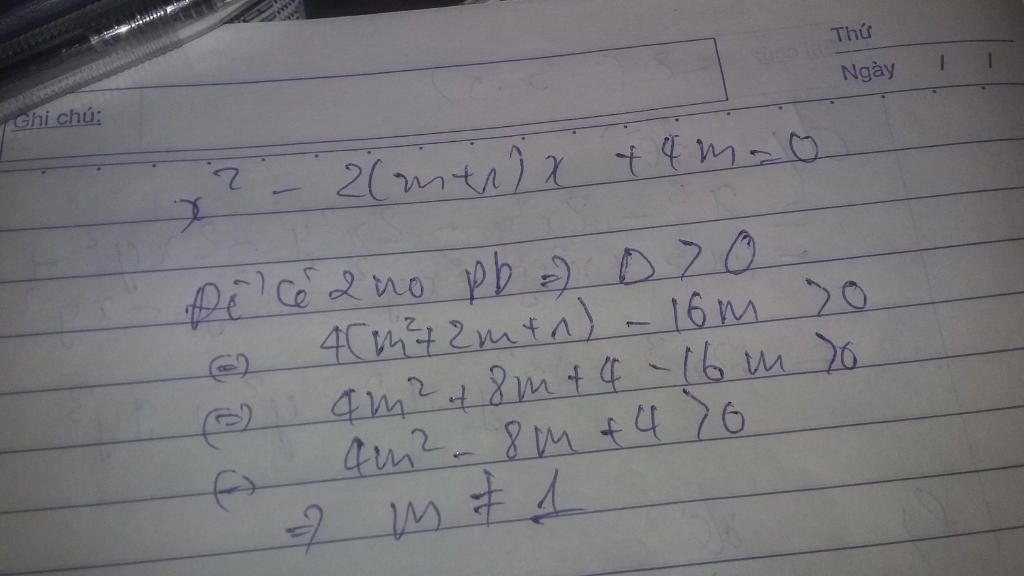 Thứ
Ngày
Ghi chú:
x² - 2(m+1)x + 4m = 0
Để có 2 no pb => Δ > 0
(=) 4(m²+2m+1) - 16m > 0
(=) 4m² + 8m + 4 - 16m > 0
(=) 4m² - 8m + 4 > 0
=> m ≠ 1